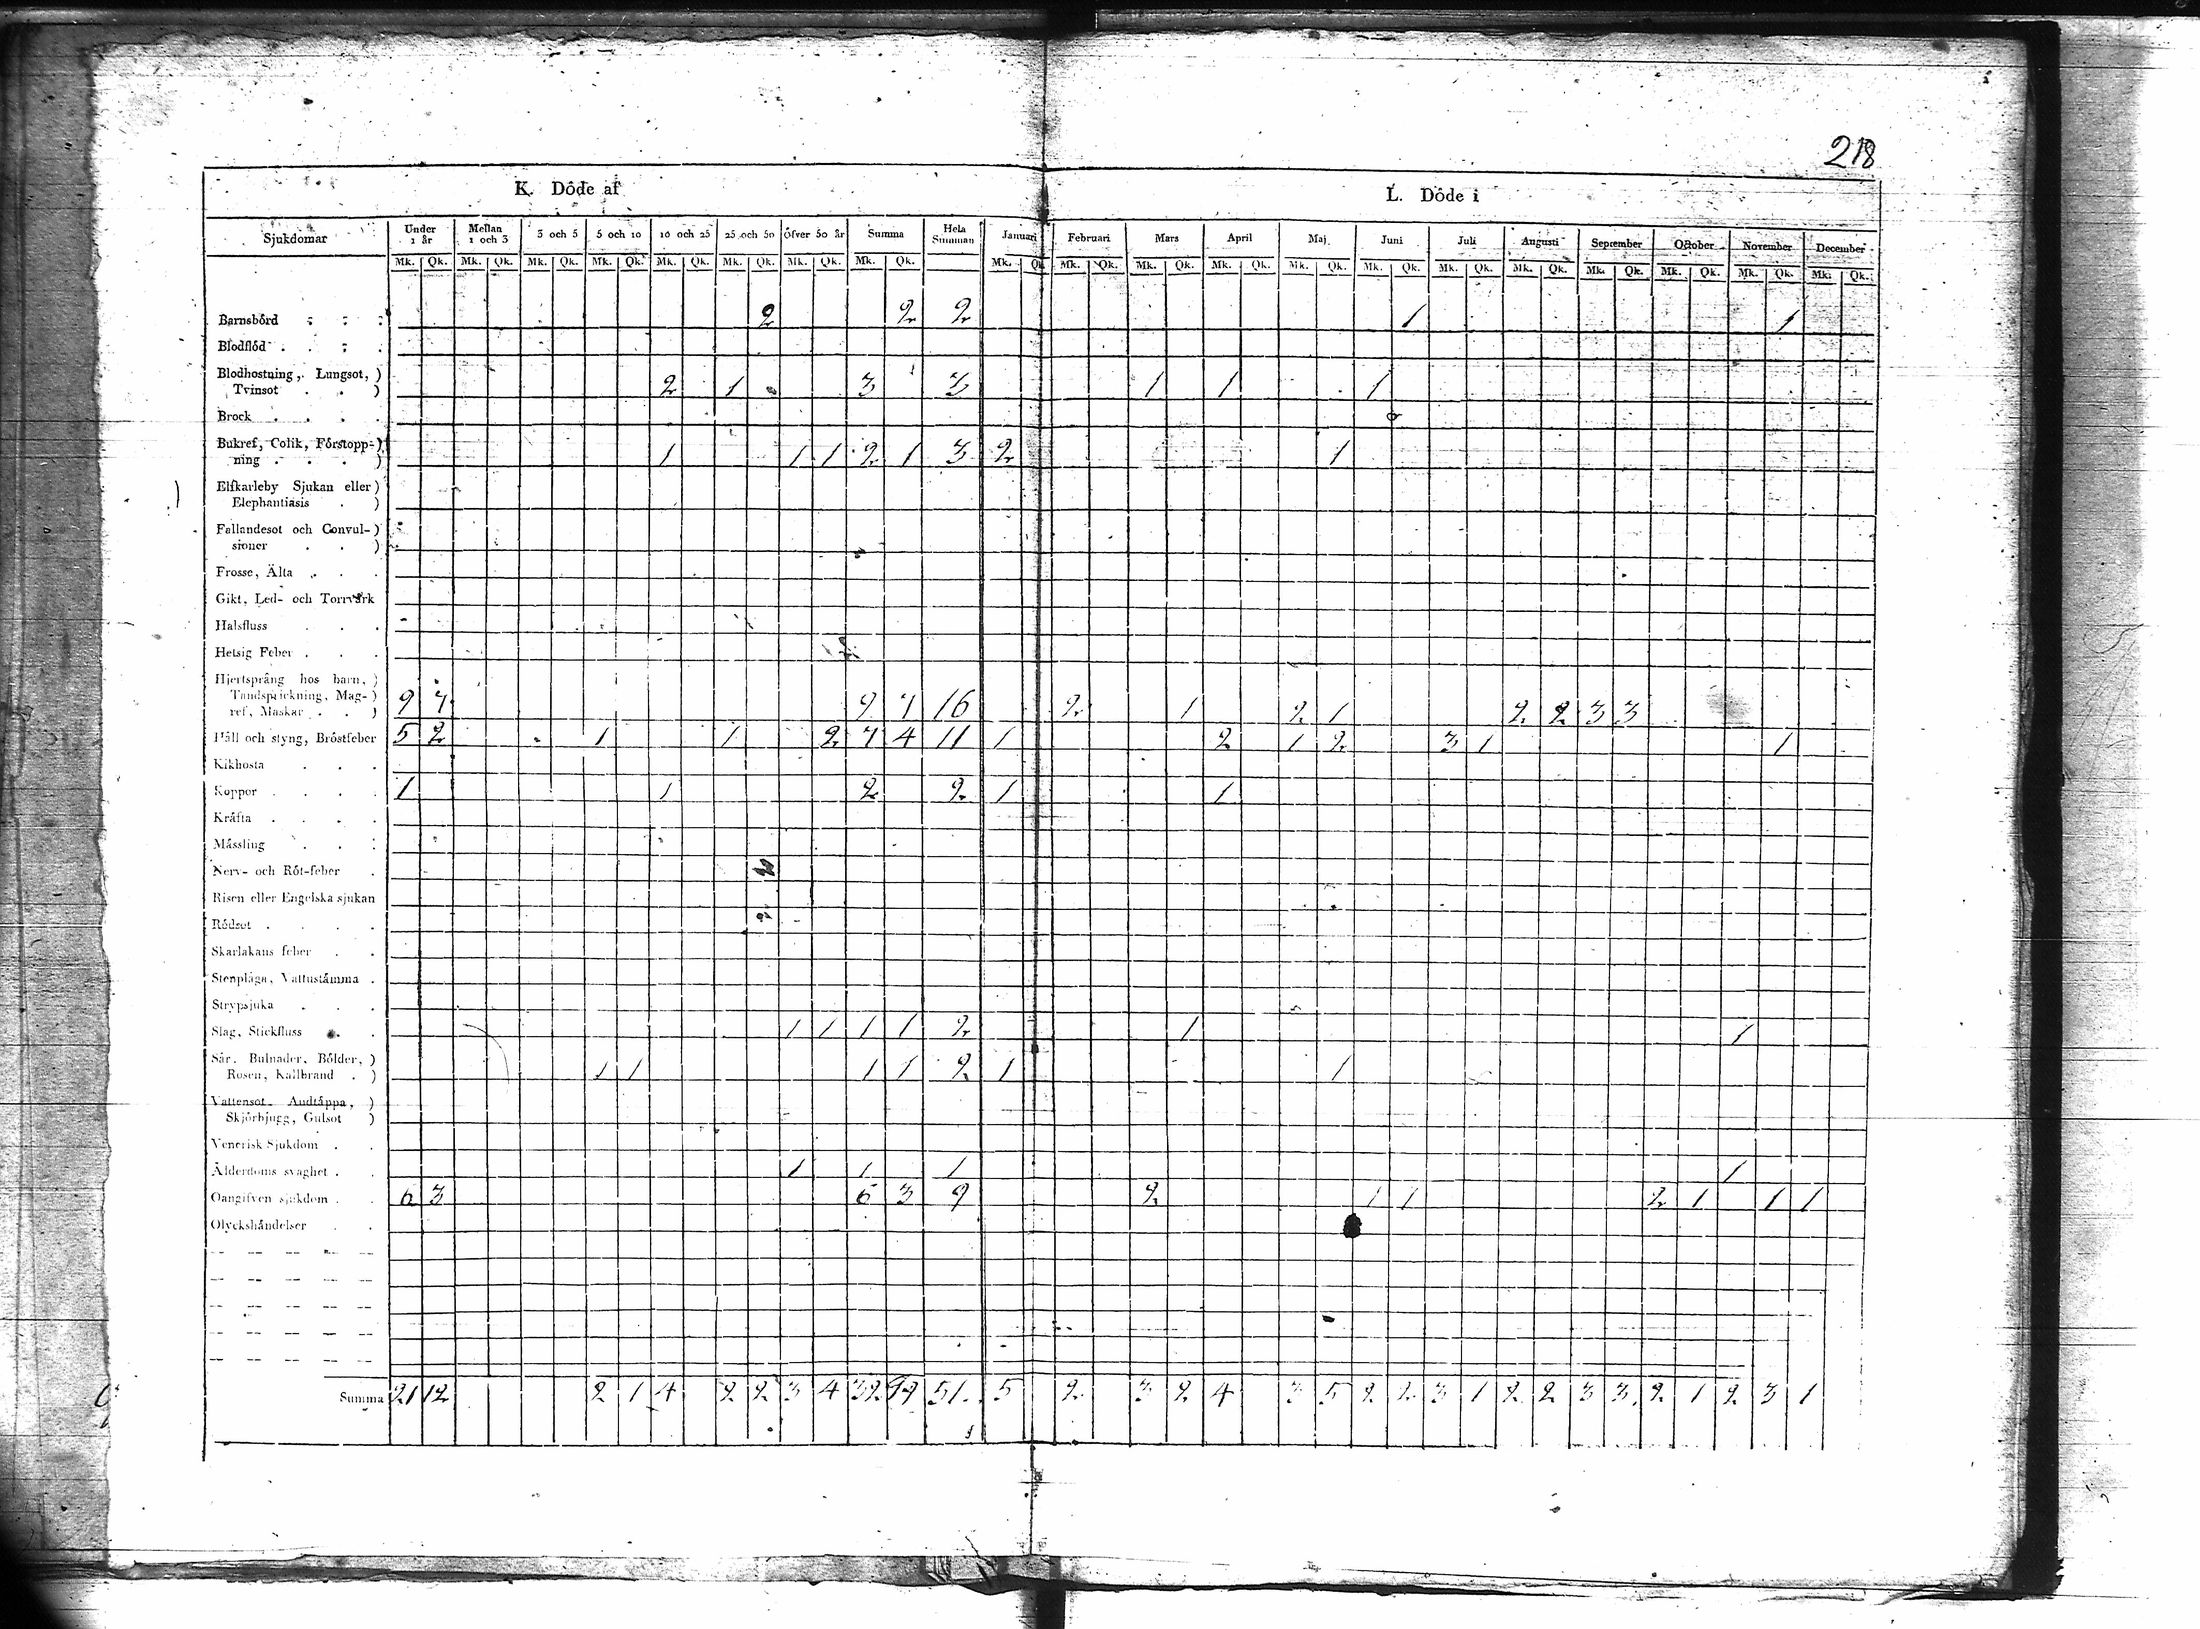 218
K. Döde af
L. Döde i
Sjukdomar Under 1 år Mellan 1 och 3 3 och 5 5 och 10 10 och 25 25 och 50 Öfver 50 år Summa Hela Summan Januari Februari Mars April Maj Juni Juli Augusti September October November December
Mk. Qk. Mk. Qk. Mk. Qk. Mk. Qk. Mk. Qk. Mk. Qk. Mk. Qk. Mk. Qk. Mk. Qk. Mk. Qk. Mk. Qk. Mk. Qk. Mk. Qk. Mk. Qk. Mk. Qk. Mk. Qk. Mk. Qk. Mk. Qk. Mk. Qk. Mk. Qk.
Barnsbörd 2 2 2 1 1
Blodflöd
Blodhostning, Lungsot,)
Tvinsot ) 2 1 3 3 1 1 1
Brock
Bukref, Colik, Förstopp-)
ning ) 1 1 1 2 1 3 2 1
Elfkarleby Sjukan eller)
Elephantiasis )
Fallandesot och Convul-)
sioner )
Frosse, Älta
Gikt, Led- och Torrvärk
Halsfluss
Hetsig Feber
Hjertsprång hos barn,)
Tandsprickning, Mag-)
ref, Maskar ) 9 7 9 7 16 2 1 2 1 2 2 3 3
Håll och styng, Bröstfeber 5 2 1 1 2 7 4 11 1 2 1 2 3 1 1
Kikhosta
Koppor 1 1 2 2 1 1
Kräfta
Måssling
Nerv- och Röt-feber
Risen eller Engelska sjukan
Rödsot
Skarlakans feber
Stenplåga, Vattustämma
Strypsjuka
Slag, Stickfluss 1 1 1 1 2 1 1
Sår, Bulnader, Bölder,)
Rosen, Kallbrand ) 1 1 1 1 2 1 1
Vattensot, Andtäppa,)
Skjörbjugg, Gulsot )
Venerisk Sjukdom
Ålderdoms svaghet 1 1 1 1
Oangifven sjukdom 6 3 6 3 9 2 1 1 2 1 1 1
Olyckshändelser
Summa 21 12 2 1 4 2 2 3 4 32 51. 5 2 3 2 4 3 5 2 2 3 1 2 2 3 3 2 1 2 3 1